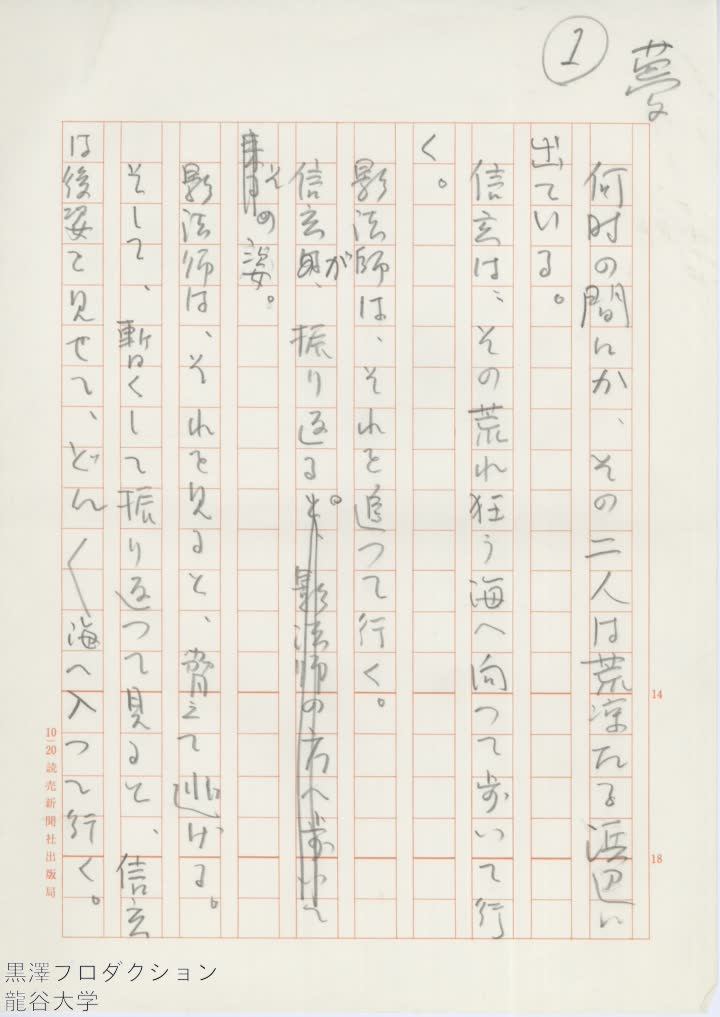 夢
1
何時の間にか、その二人は荒涼たる浜辺に
出ている。
信玄は、その荒れ狂う海へ向つて歩いて行
く。
影法師は、それを追つて行く。
信玄が、振り返る。影法師の方へ歩いて
その姿。
影法師は、それを見ると、脅えて逃げる。
そして、暫くして振り返つて見ると、信玄
は後姿を見せて、どん〱海へ入つて行く。
14
18
10―20 読売新聞社出版局
黒澤プロダクション
龍谷大学